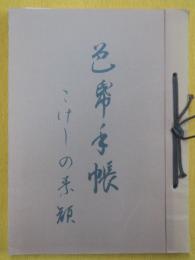 芭帋手帳
こけしの素顔